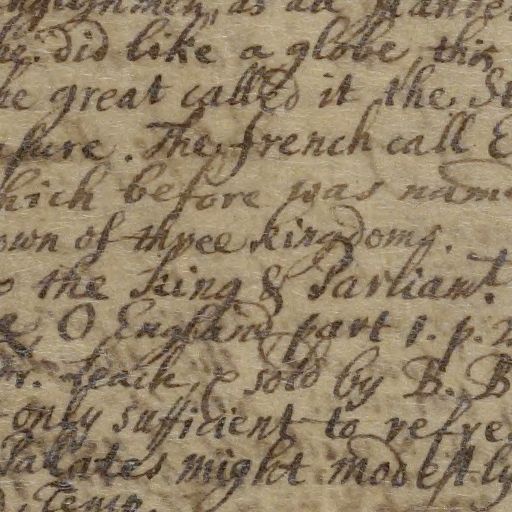 as an
he. did like a globe, this
he great called it the St
asure. The french call E
hich before was nam
own of three kingdoms.
the King & Parliamt.
O England part 1. p. 2
Dr. Leach, & sold by B. B
only sufficient to refre
Palates might modestly
Temp.